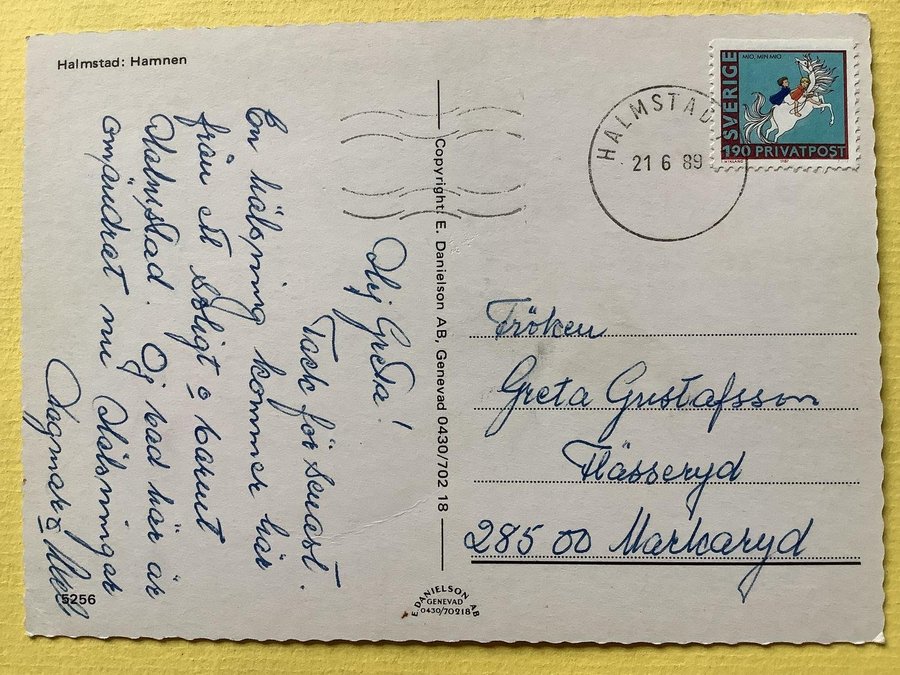 Halmstad: Hamnen
Hej Greta!
Tack för senast.
En hälsning kommer här
från ett soligt o varmt
Halmstad. Oj vad här är
omändrat nu Hälsningar
Dagmar o
5256
Copyright: E. Danielson AB, Genevad 0430/702 18
E DANIELSON AB
GENEVAD
0430/70218
HALMSTAD
21 6 89
SVERIGE
MIO, MIN MIO
190 PRIVATPOST
Fröken
Greta Gustafsson
Hässeryd
285 00 Markaryd